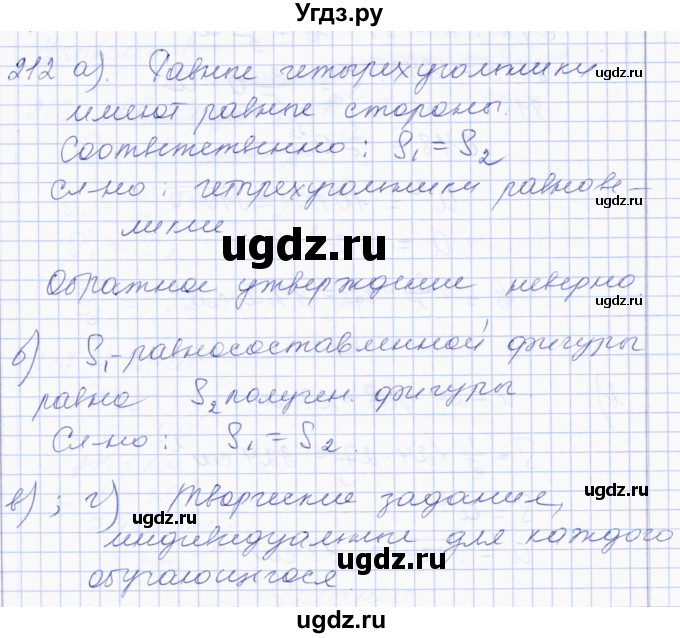 Угдз.ру
212 а). Равные четырехугольники
имеют равные стороны.
Соответственно: S₁ = S₂
Сл-но: четрехугольники равнове-
ликие
Обратное утверждение неверно
б) S₁-равносоставленной фигуры
равна S₂ получен. фигуры.
Сл-но: S₁ = S₂.
в); г) Творческие задания,
индивидуальные для каждого
обучающегося.
ugdz.ru
ugdz.ru
ugdz.ru
ugdz.ru
ugdz.ru
ugdz.ru
ugdz.ru
ugdz.ru
ugdz.ru